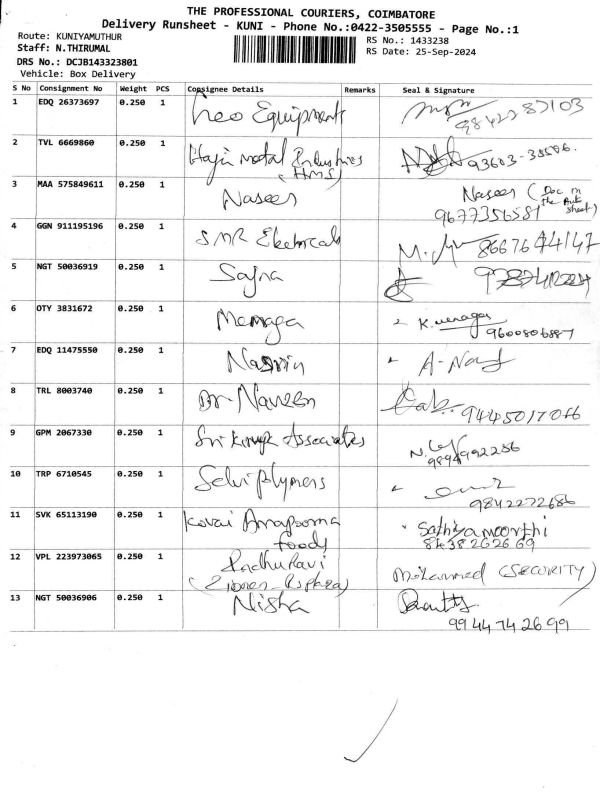 THE PROFESSIONAL COURIERS, COIMBATORE
Delivery Runsheet - KUNI - Phone No.:0422-3505555 - Page No.:1
Route: KUNIYAMUTHUR
RS No.: 1433238
Staff: N.THIRUMAL
RS Date: 25-Sep-2024
DRS No.: DCJB143323801
Vehicle: Box Delivery
S No Consignment No Weight PCS Consignee Details Remarks Seal & Signature
1 EDQ 26373697 0.250 1 Leo Equipments
2 TVL 6669860 0.250 1 metal Industries
(HMS)
3 MAA 575849611 0.250 1 Naseer Naseer (Doc in the sheet)
9677356581
4 GGN 911195196 0.250 1 SMR Electricals
5 NGT 50036919 0.250 1 Sajna
6 OTY 3831672 0.250 1
9600806887
7 EDQ 11475550 0.250 1 Nasrin
8 TRL 8003740 0.250 1 Dr Naveen
9 GPM 2067330 0.250 1 Associates
10 TRP 6710545 0.250 1 Selvi Plymers
9842272686
11 SVK 65113190 0.250 1 Kovai Annapoorna Sathiyamoorthi
foods 8438262669
12 VPL 223973065 0.250 1 Mohammed (SECURITY)
13 NGT 50036906 0.250 1 Nisha
9944742699